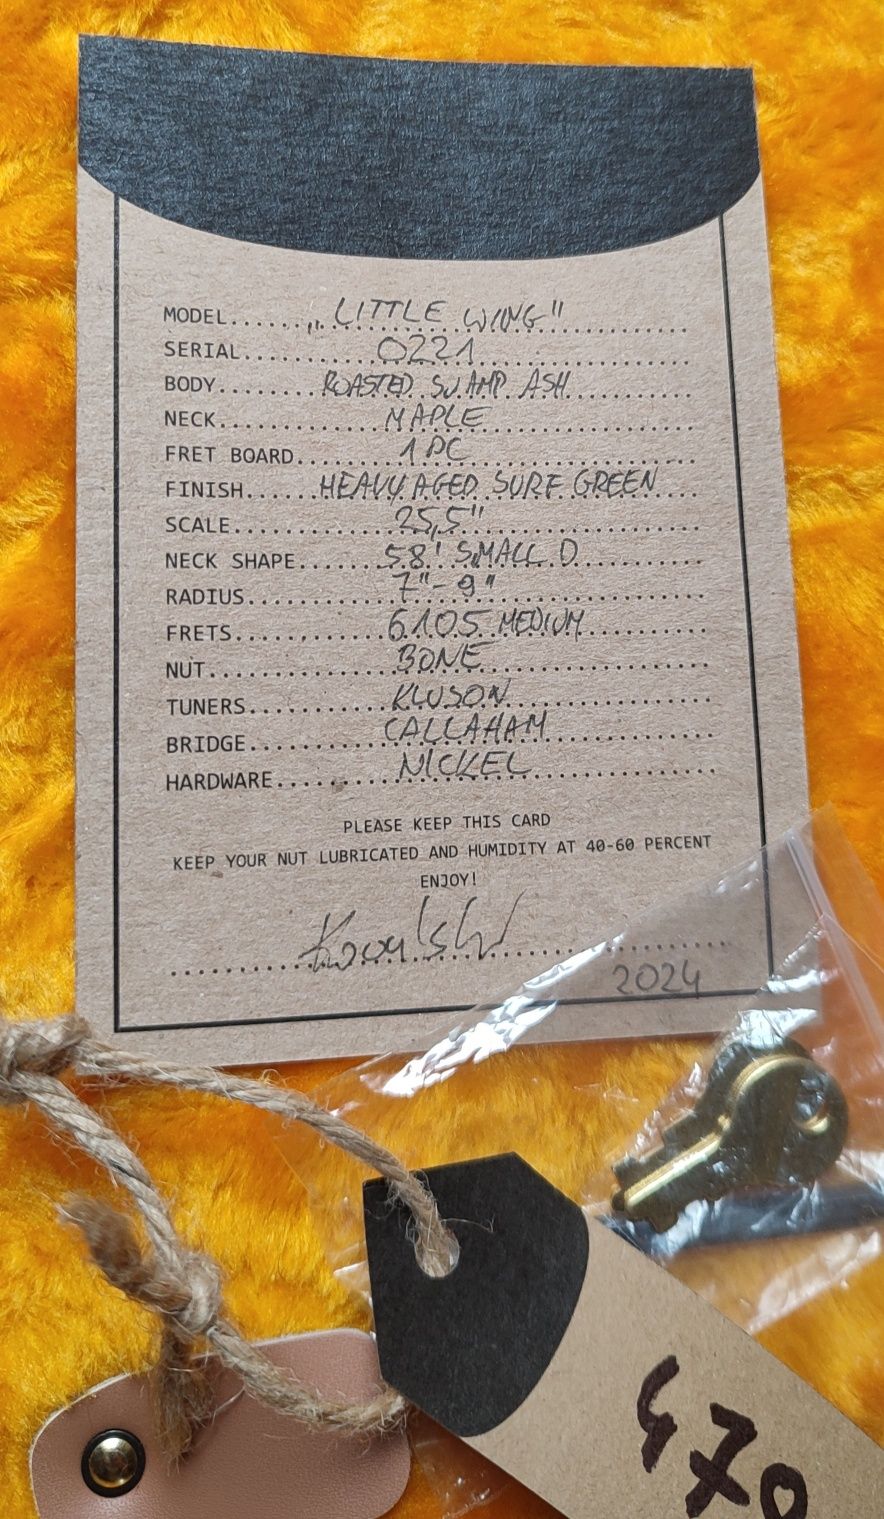 MODEL...... „LITTLE WING"
SERIAL...... 0221
BODY...... ROASTED SWAMP ASH
NECK...... MAPLE
FRET BOARD...... 1 PC
FINISH...... HEAVY AGED SURF GREEN
SCALE...... 25,5"
NECK SHAPE...... 58' SMALL D
RADIUS...... 7"-9"
FRETS...... 6105 MEDIUM
NUT...... BONE
TUNERS...... KLUSON
BRIDGE...... CALLAHAM
HARDWARE...... NICKEL
PLEASE KEEP THIS CARD
KEEP YOUR NUT LUBRICATED AND HUMIDITY AT 40-60 PERCENT
ENJOY!
2024
470